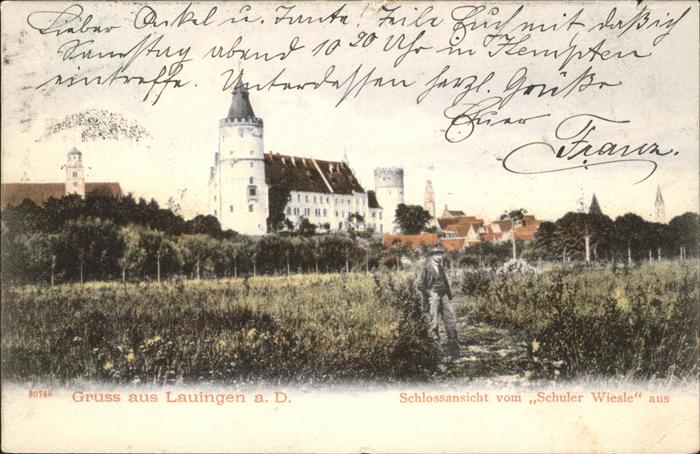 Lieber Onkel u. Tante. Teile Euch mit daß ich
Samstag abend 10 20 Uhr in Kempten
eintreffe. Unterdessen herzl. Grüße
Euer
Franz.
30748 Gruss aus Lauingen a. D. Schlossansicht vom „Schuler Wiesle“ aus